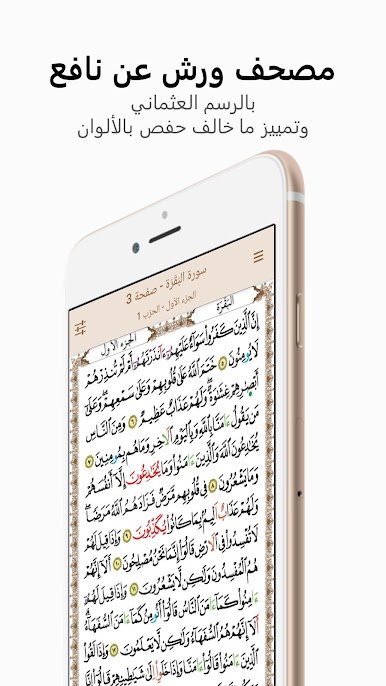 مصحف ورش عن نافع
بالرسم العثماني
وتمييز ما خالف حفص بالألوان
سورة البقرة - صفحة 3
الجزء الأول - الحزب 1
البَقَرَة
الجزء الاول
إِنَّ اَ۬لذِينَ كَفَرُواْ سَوَآءٌ عَلَيْهِمُۥٓ ءَآنذَرْتَهُمُۥٓ أَمْ لَمْ تُنذِرْهُمْ
لَا يُومِنُونَ ٥ خَتَمَ اَ۬للَّهُ عَلَىٰ قُلُوبِهِمْ وَعَلَىٰ سَمْعِهِمْ وَعَلَىٰٓ
أَبْصٰ۪رِهِمْ غِشَٰوَةٌ وَلَهُمْ عَذَابٌ عَظِيمٌ ٦ وَمِنَ اَ۬لنَّاسِ
مَنْ يَّقُولُ ءَامَنَّا بِاللَّهِ وَبِالْيَوْمِ اِ۬لَاخِرِ وَمَا هُم بِمُومِنِينَ ٧
يُخَٰدِعُونَ اَ۬للَّهَ وَالذِينَ ءَامَنُواْ وَمَا يُخَٰدِعُونَ إِلَّآ أَنفُسَهُمْ
وَمَا يَشْعُرُونَ ٨ فِي قُلُوبِهِم مَّرَضٌ فَزَادَهُمُ اُ۬للَّهُ مَرَضاً
وَلَهُمْ عَذَابٌ اَلِيمٌ بِمَا كَانُواْ يُكَذِّبُونَ ٩ وَإِذَا قِيلَ لَهُمْ
لَا تُفْسِدُواْ فِي اِ۬لَارْضِ قَالُوٓاْ إِنَّمَا نَحْنُ مُصْلِحُونَ ١٠ أَلَآ إِنَّهُمْ
هُمُ اُ۬لْمُفْسِدُونَ وَلَٰكِن لَّا يَشْعُرُونَ ١١ وَإِذَا قِيلَ لَهُمُۥٓ
ءَامِنُواْ كَمَآ ءَامَنَ اَ۬لنَّاسُ قَالُوٓاْ أَنُومِنُ كَمَآ ءَامَنَ اَ۬لسُّفَهَآءُ
أَلَآ إِنَّهُمْ هُمُ اُ۬لسُّفَهَآءُ وَلَٰكِن لَّا يَعْلَمُونَ ١٢ وَإِذَا لَقُواْ
اُ۬لذِينَ ءَامَنُواْ قَالُوٓاْ ءَامَنَّا وَإِذَا خَلَوِاْ اِلَىٰ شَيَٰطِينِهِمْ